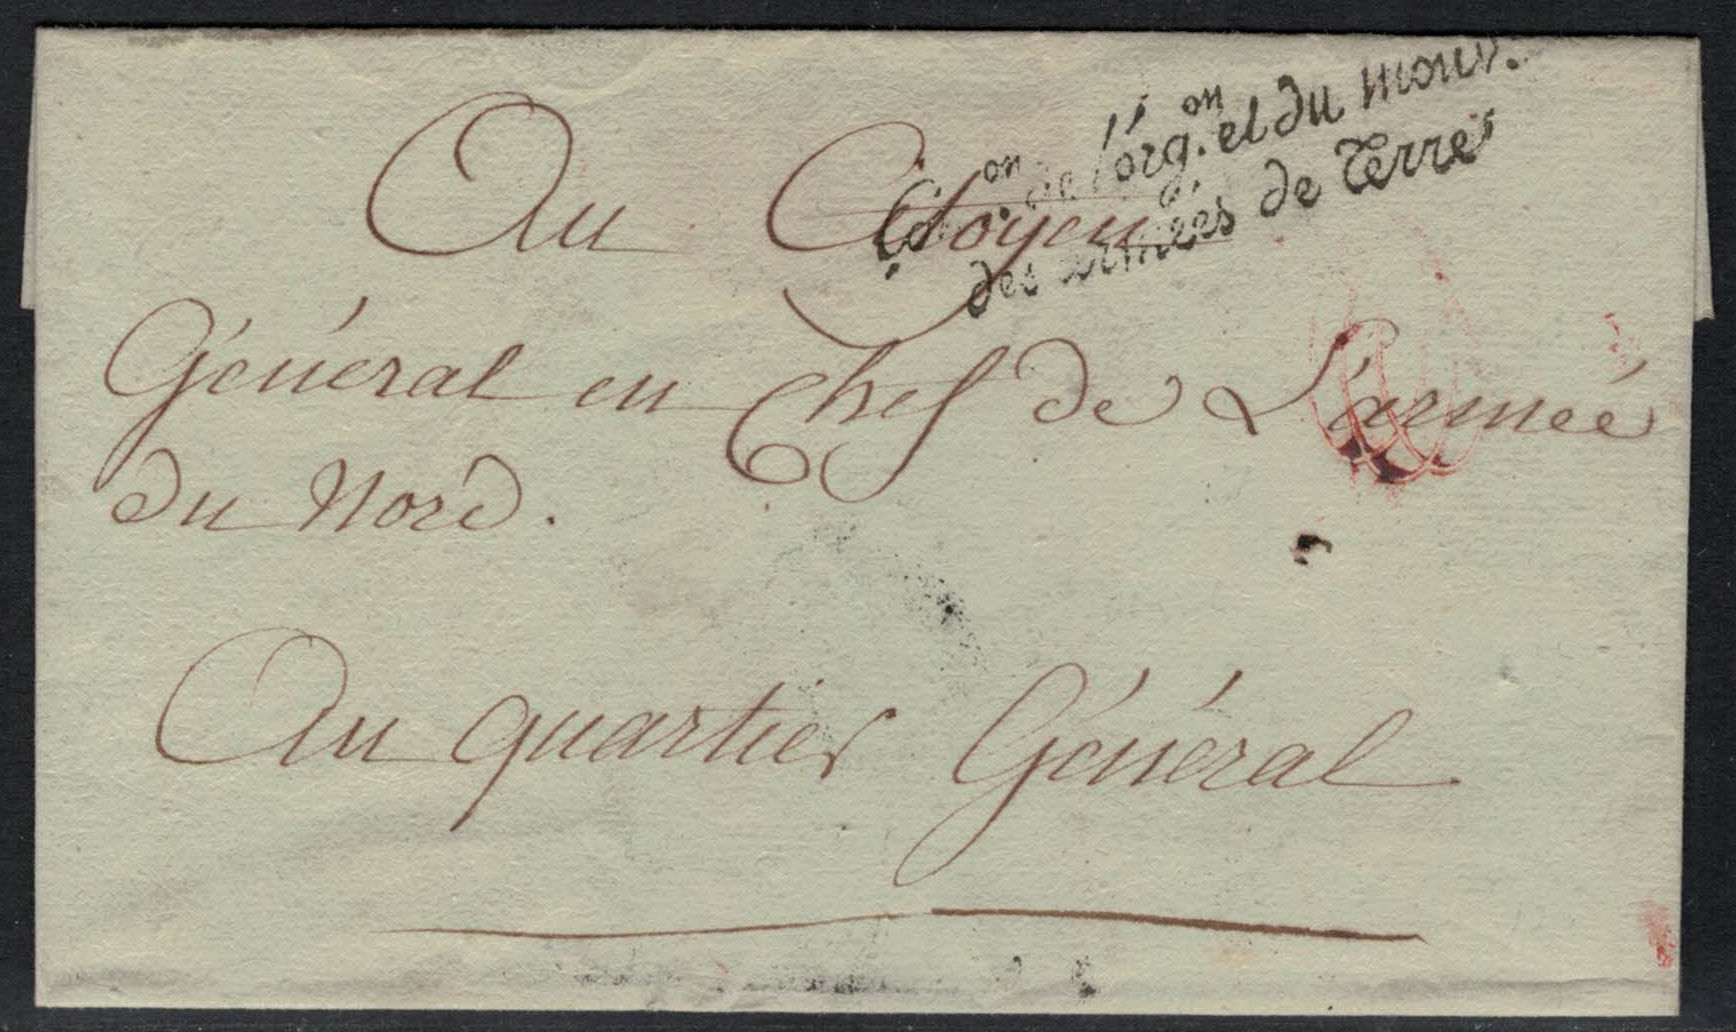 Com.on de l'org.on et du mouv.
des armées de Terre
Au Citoyen
Général en Chef de L'armée
du Nord.
Au quartier Général